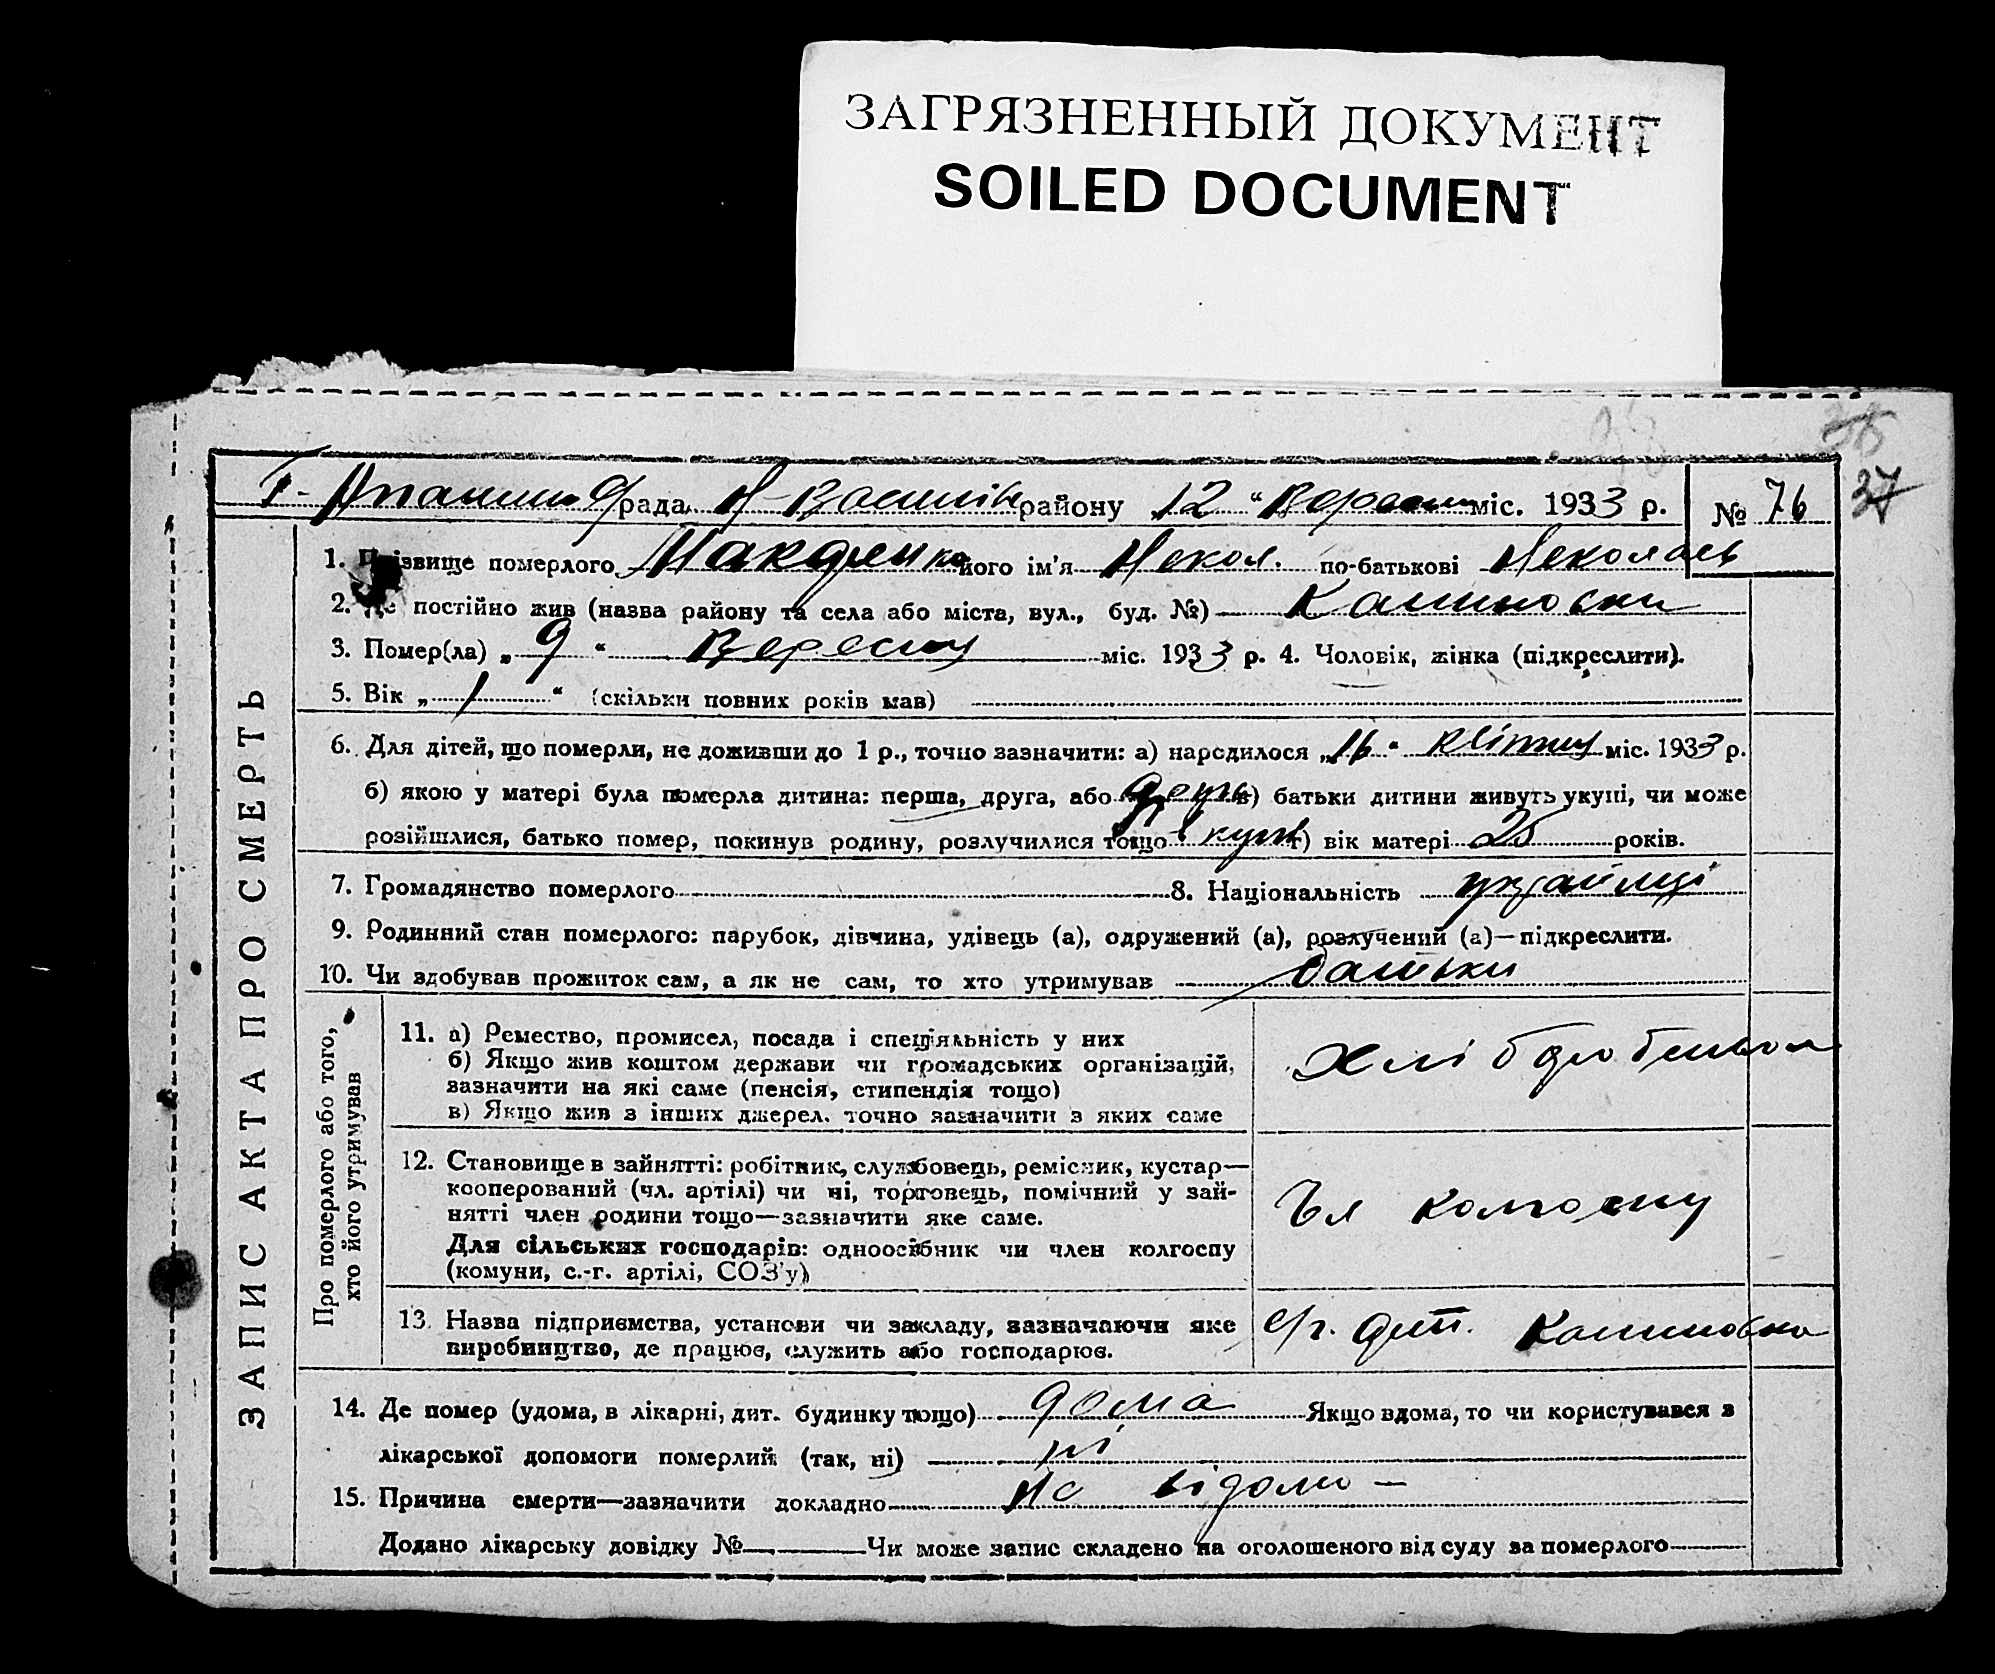 ЗАГРЯЗНЕННЫЙ ДОКУМЕНТ
SOILED DOCUMENT
рада району 12 " міс. 1933 р. № 76 37
1. Прізвище померлого його ім'я Некол. по-батькові
2. Де постійно жив (назва району та села або міста, вул., буд. №)
3. Помер(ла) „ 9 “ Вересня міс. 1933 р. 4. Чоловік, жінка (підкреслити).
5. Вік „ 1 “ (скільки повних років мав)
6. Для дітей, що померли, не доживши до 1 р., точно зазначити: а) народилося „16“ квітня міс. 1933 р.
б) якою у матері була померла дитина: перша, друга, або в) батьки дитини живуть укупі, чи може
розійшлися, батько помер, покинув родину, розлучилися тощо вкупі г) вік матері 25 років.
7. Громадянство померлого 8. Національність
9. Родинний стан померлого: парубок, дівчина, удівець (а), одружений (а), розлучений (а)—підкреслити.
10. Чи здобував прожиток сам, а як не сам, то хто утримував батьки
ЗАПИС АКТА ПРО СМЕРТЬ
Про померлого або того,
хто його утримував
11. а) Ремество, промисел, посада і спеціяльність у них
б) Якщо жив коштом держави чи громадських організацій,
зазначити на які саме (пенсія, стипендія тощо)
в) Якщо жив з інших джерел, точно зазначити з яких саме
12. Становище в зайнятті: робітник, службовець, ремісник, кустар—
кооперований (чл. артілі) чи ні, торговець, помічний у зай-
нятті член родини тощо—зазначити яке саме.
Для сільських господарів: одноосібник чи член колгоспу
(комуни, с.-г. артілі, СОЗ'у)
13. Назва підприємства, установи чи закладу, зазначаючи яке
виробництво, де працює, служить або господарює.
14. Де помер (удома, в лікарні, дит. будинку тощо) дома Якщо вдома, то чи користувався з
лікарської допомоги померлий (так, ні) ні
15. Причина смерти—зазначити докладно не відомо —
Додано лікарську довідку № Чи може запис складено на оголошеного від суду за померлого